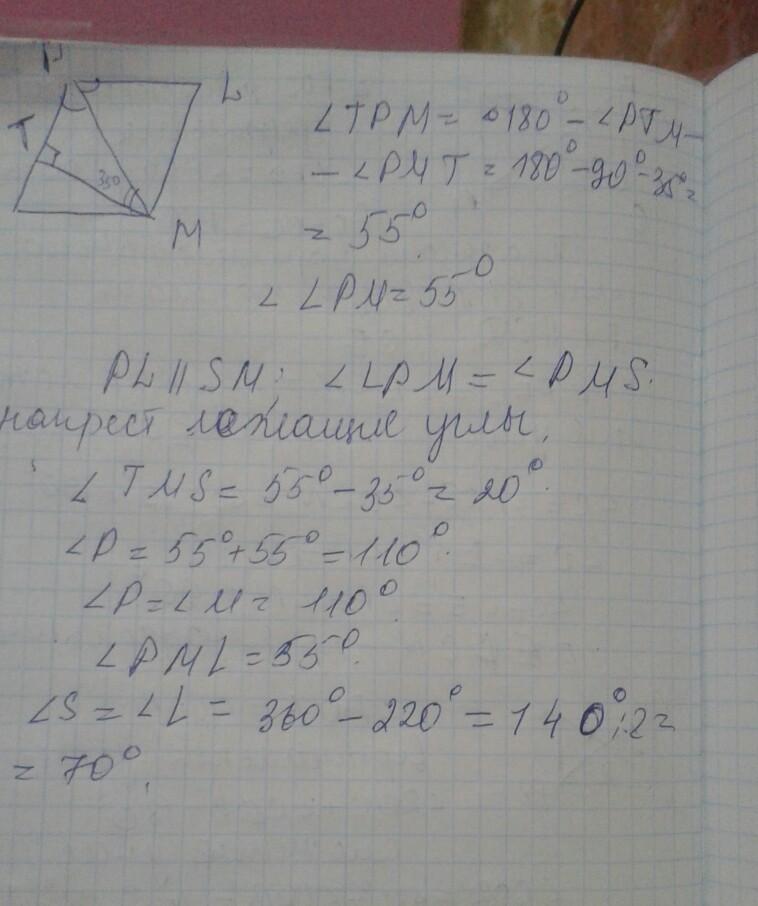 P
L
T
35°
M
∠TPM = 180° - ∠PTM -
- ∠PMT = 180° - 90° - 35° =
= 55°
∠LPM = 55°
PL || SM; ∠LPM = ∠PMS.
накрест лежащие углы,
∠TMS = 55° - 35° = 20°.
∠P = 55° + 55° = 110°.
∠P = ∠M = 110°.
∠PML = 55°.
∠S = ∠L = 360° - 220° = 140° : 2 =
= 70°.